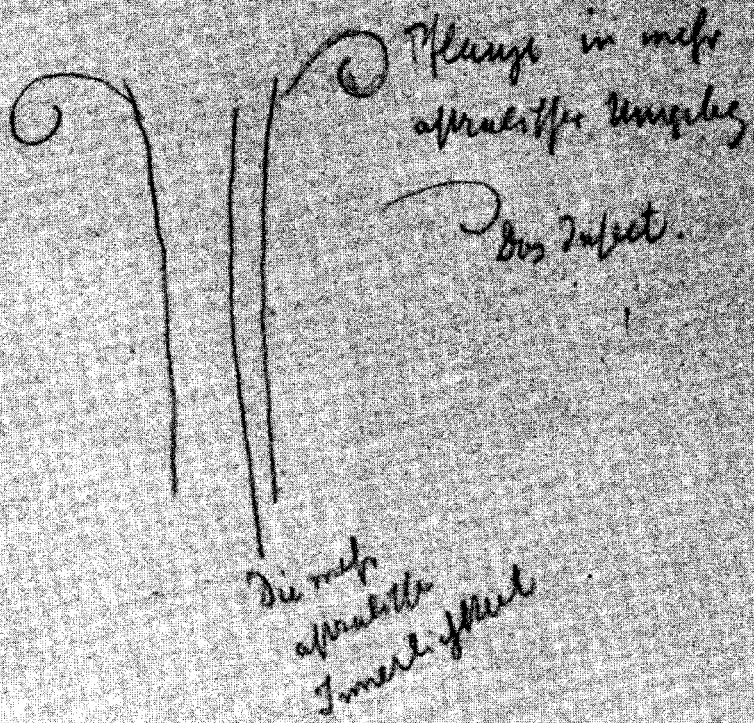 Pflanze in mehr
astralischer Umgebg
Das Insect.
Die mehr
astralische
Innerlichkeit